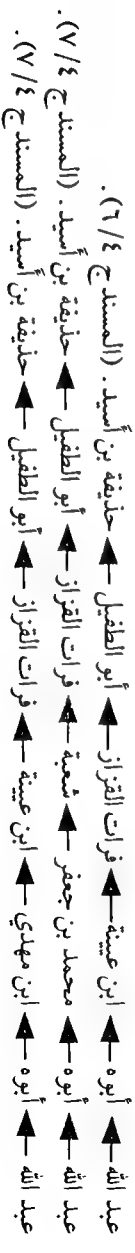 عبد الله ← أبوه ← ابن عيينة ← فرات القزاز ← أبو الطفيل ← حذيفة بن أسيد. (المسند ج ٤/٦).
عبد الله ← أبوه ← محمد بن جعفر ← شعبة ← فرات القزاز ← أبو الطفيل ← حذيفة بن أسيد. (المسند ج ٤/٧).
عبد الله ← أبوه ← ابن مهدي ← ابن عيينة ← فرات القزاز ← أبو الطفيل ← حذيفة بن أسيد. (المسند ج ٤/٧).